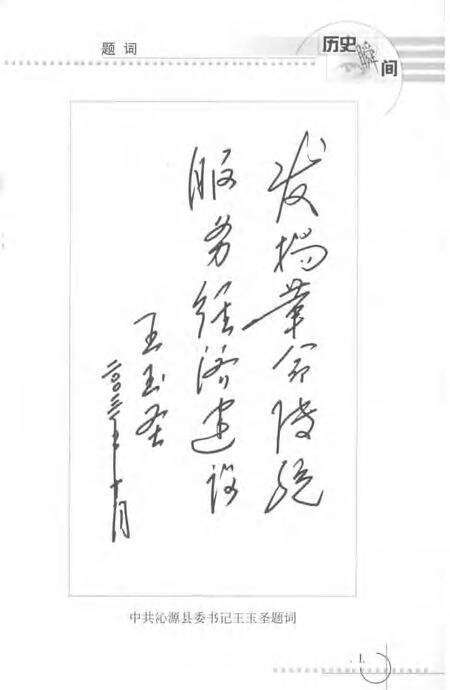 题 词
历史瞬间
发扬革命传统
服务经济建设
王玉圣
二00三年十月
中共沁源县委书记王玉圣题词
1